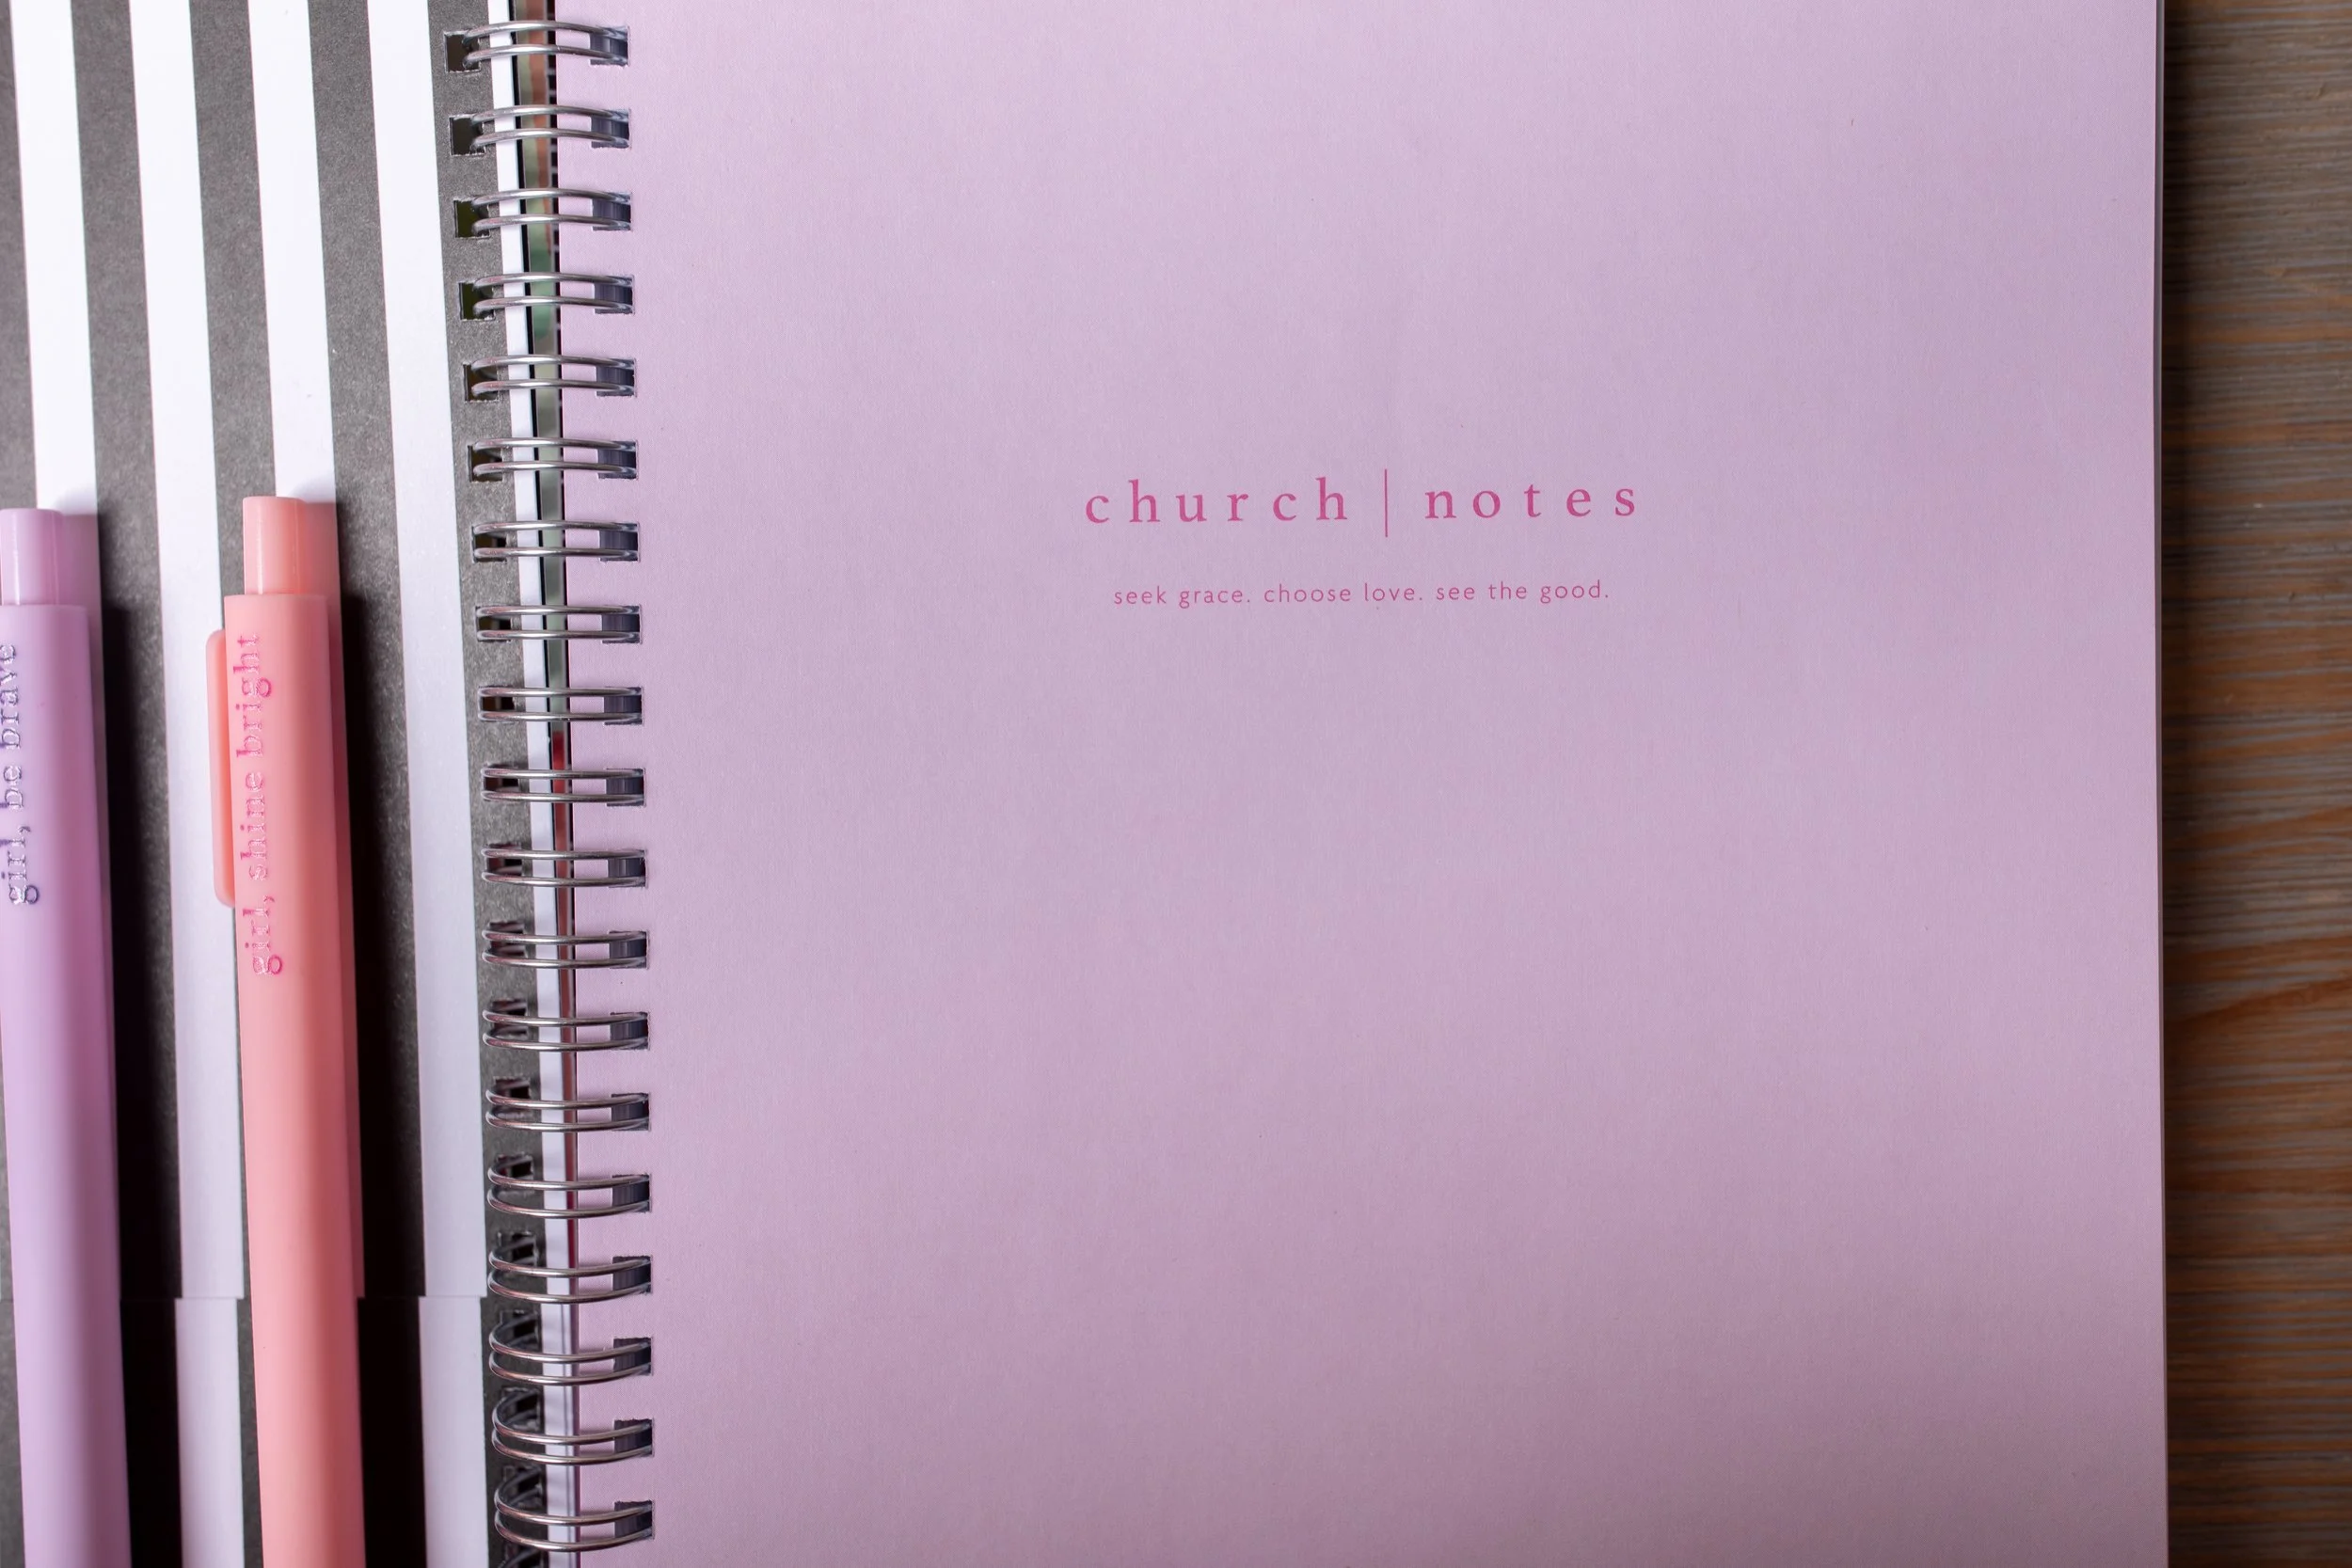 girl, be brave
girl, shine bright
church | notes
seek grace. choose love. see the good.